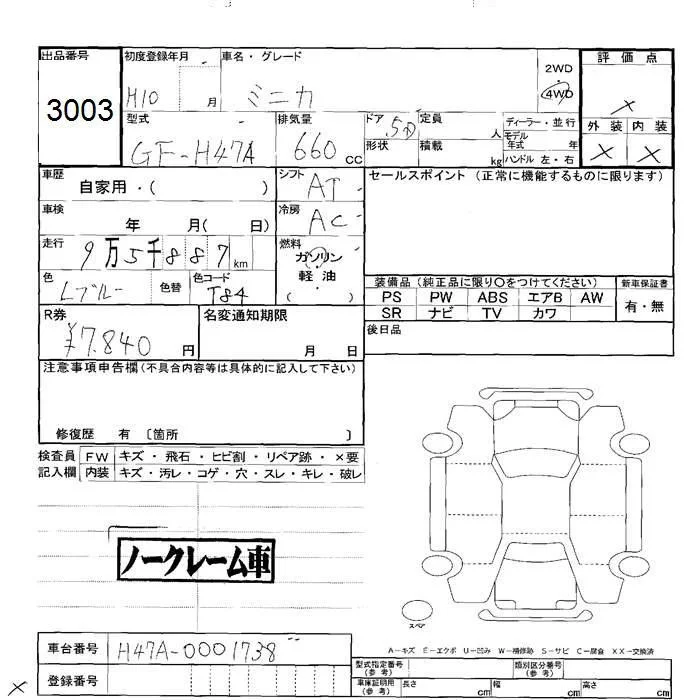 出品番号
3003
初度登録年月
H10 月
車名・グレード
ミニカ
2WD
・
4WD
評価点
×
外装 内装
× ×
型式
GF-H47A
排気量
660 cc
ドア 5D
形状
定員 人
積載 kg
ディーラー・並行
モデル年式 年
ハンドル 左・右
車歴
自家用・( )
シフト
AT
車検
年 月( 日)
冷房
AC
走行
9万5千887km
燃料
ガソリン
・
軽油
( )
色
Lブルー 色替
色コード
T84
R券
¥7.840 円
名変通知期限
月 日
セールスポイント (正常に機能するものに限ります)
装備品 (純正品に限り〇をつけてください)
PS PW ABS エアB AW
SR ナビ TV カワ
新車保証書
有・無
後日品
注意事項申告欄(不具合内容等は具体的に記入して下さい)
修復歴 有 〔箇所 〕
検査員 FW キズ・飛石・ヒビ割・リペア跡・×要
記入欄 内装 キズ・汚レ・コゲ・穴・スレ・キレ・破レ
ノークレーム車
スペア
A-キズ E-エクボ U-凹み W-補修跡 S-サビ C-腐食 XX-交換済
車台番号 H47A-0001738
登録番号
型式指定番号
(参考)
類別区分番号
(参考)
車庫証明用
(参考)
長さ cm 幅 cm 高さ cm
×